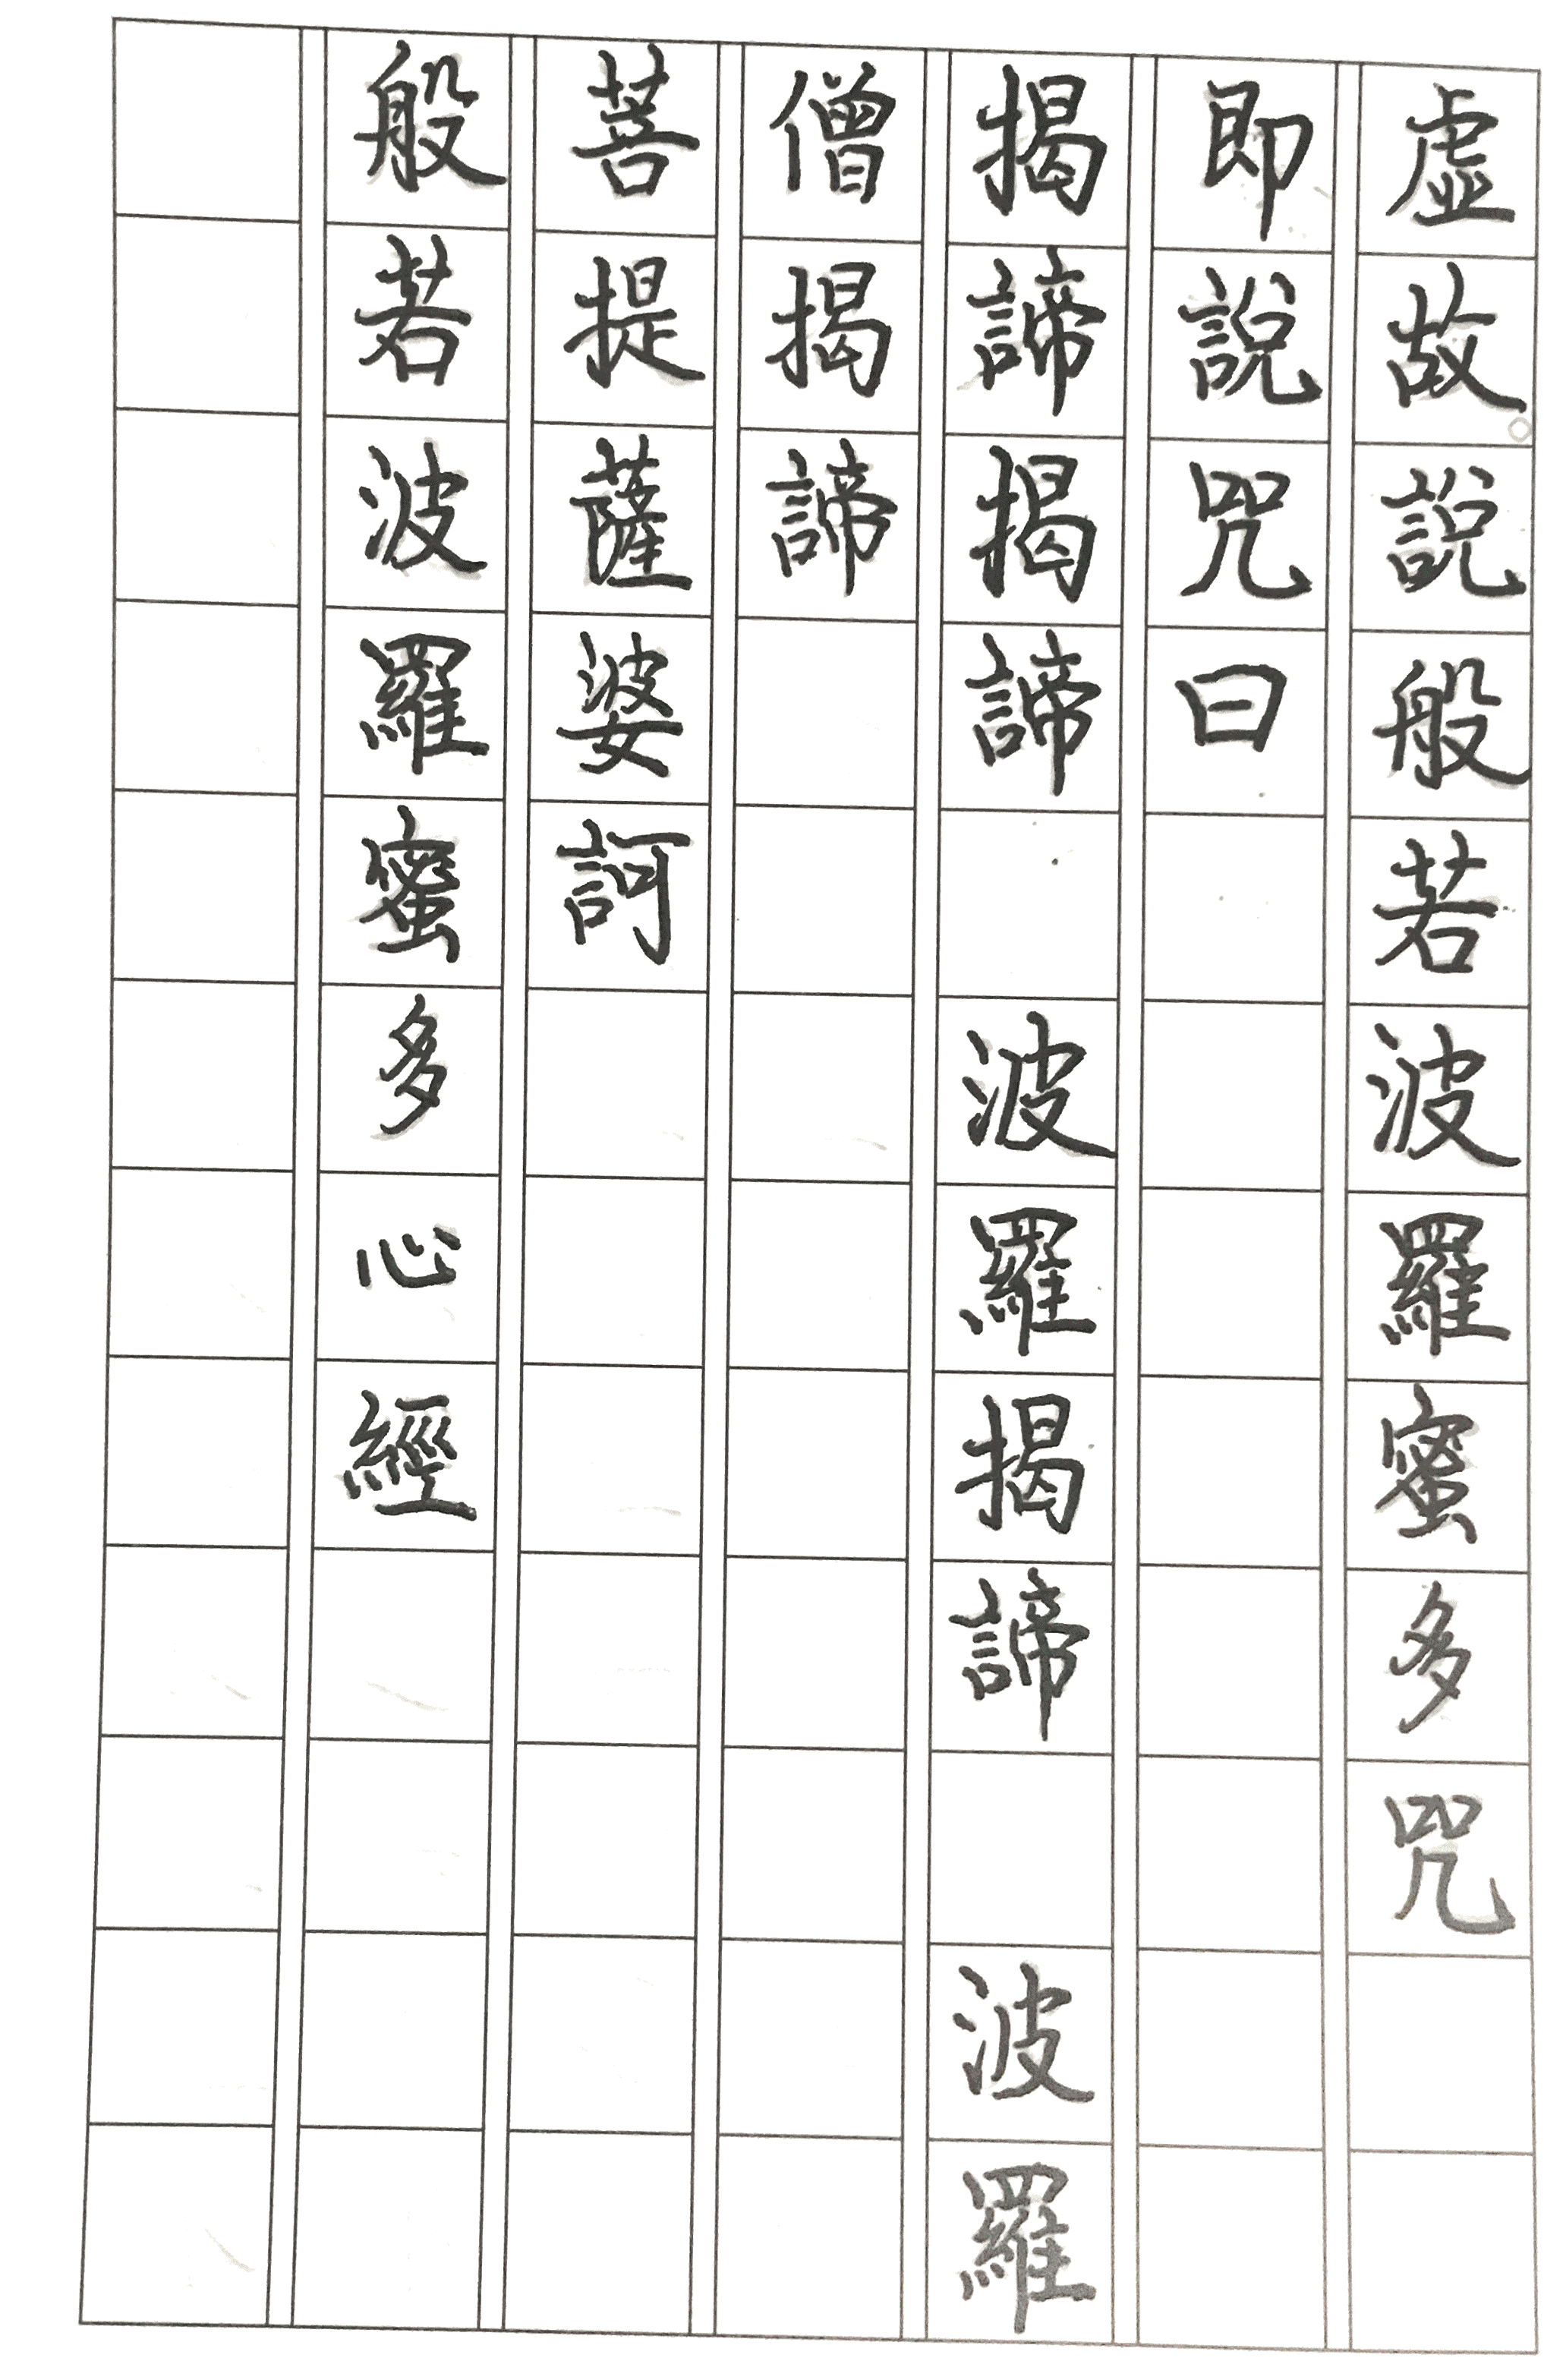 虛故說般若波羅蜜多咒
即說咒曰
揭諦揭諦　波羅揭諦　波羅
僧揭諦
菩提薩婆訶
般若波羅蜜多心經